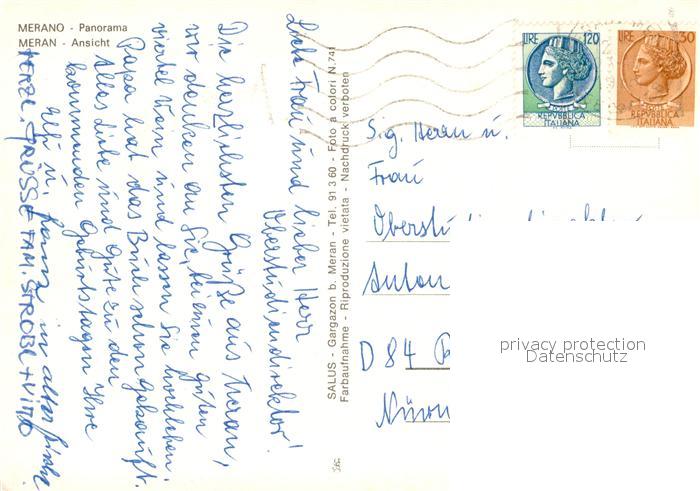 MERANO - Panorama
MERAN - Ansicht
Liebe Frau und lieber Herr
Oberstudiendirektor!
Die herzlichsten Grüße aus Meran,
wir denken an Sie, bei einem guten
viertel Wein und lassen Sie hochleben.
Papa hat das Buch schon gekauft.
Alles Liebe und Gute zu den
kommenden Geburtstagen Ihre
u. Franz in alter Frische
HERZL. GRÜSSE FAM. STROBL + VITO
SALUS - Gargazon b. Meran - Tel. 91 3 60 - Foto a colori N. 741
Farbaufnahme - Riproduzione vietata - Nachdruck verboten
LIRE 120
REPVBBLICA
ITALIANA
LIRE 30
REPVBBLICA
ITALIANA
Sig. Herrn u.
Frau
Oberstudiendirektor
Anton
D 84
privacy protection
Datenschutz